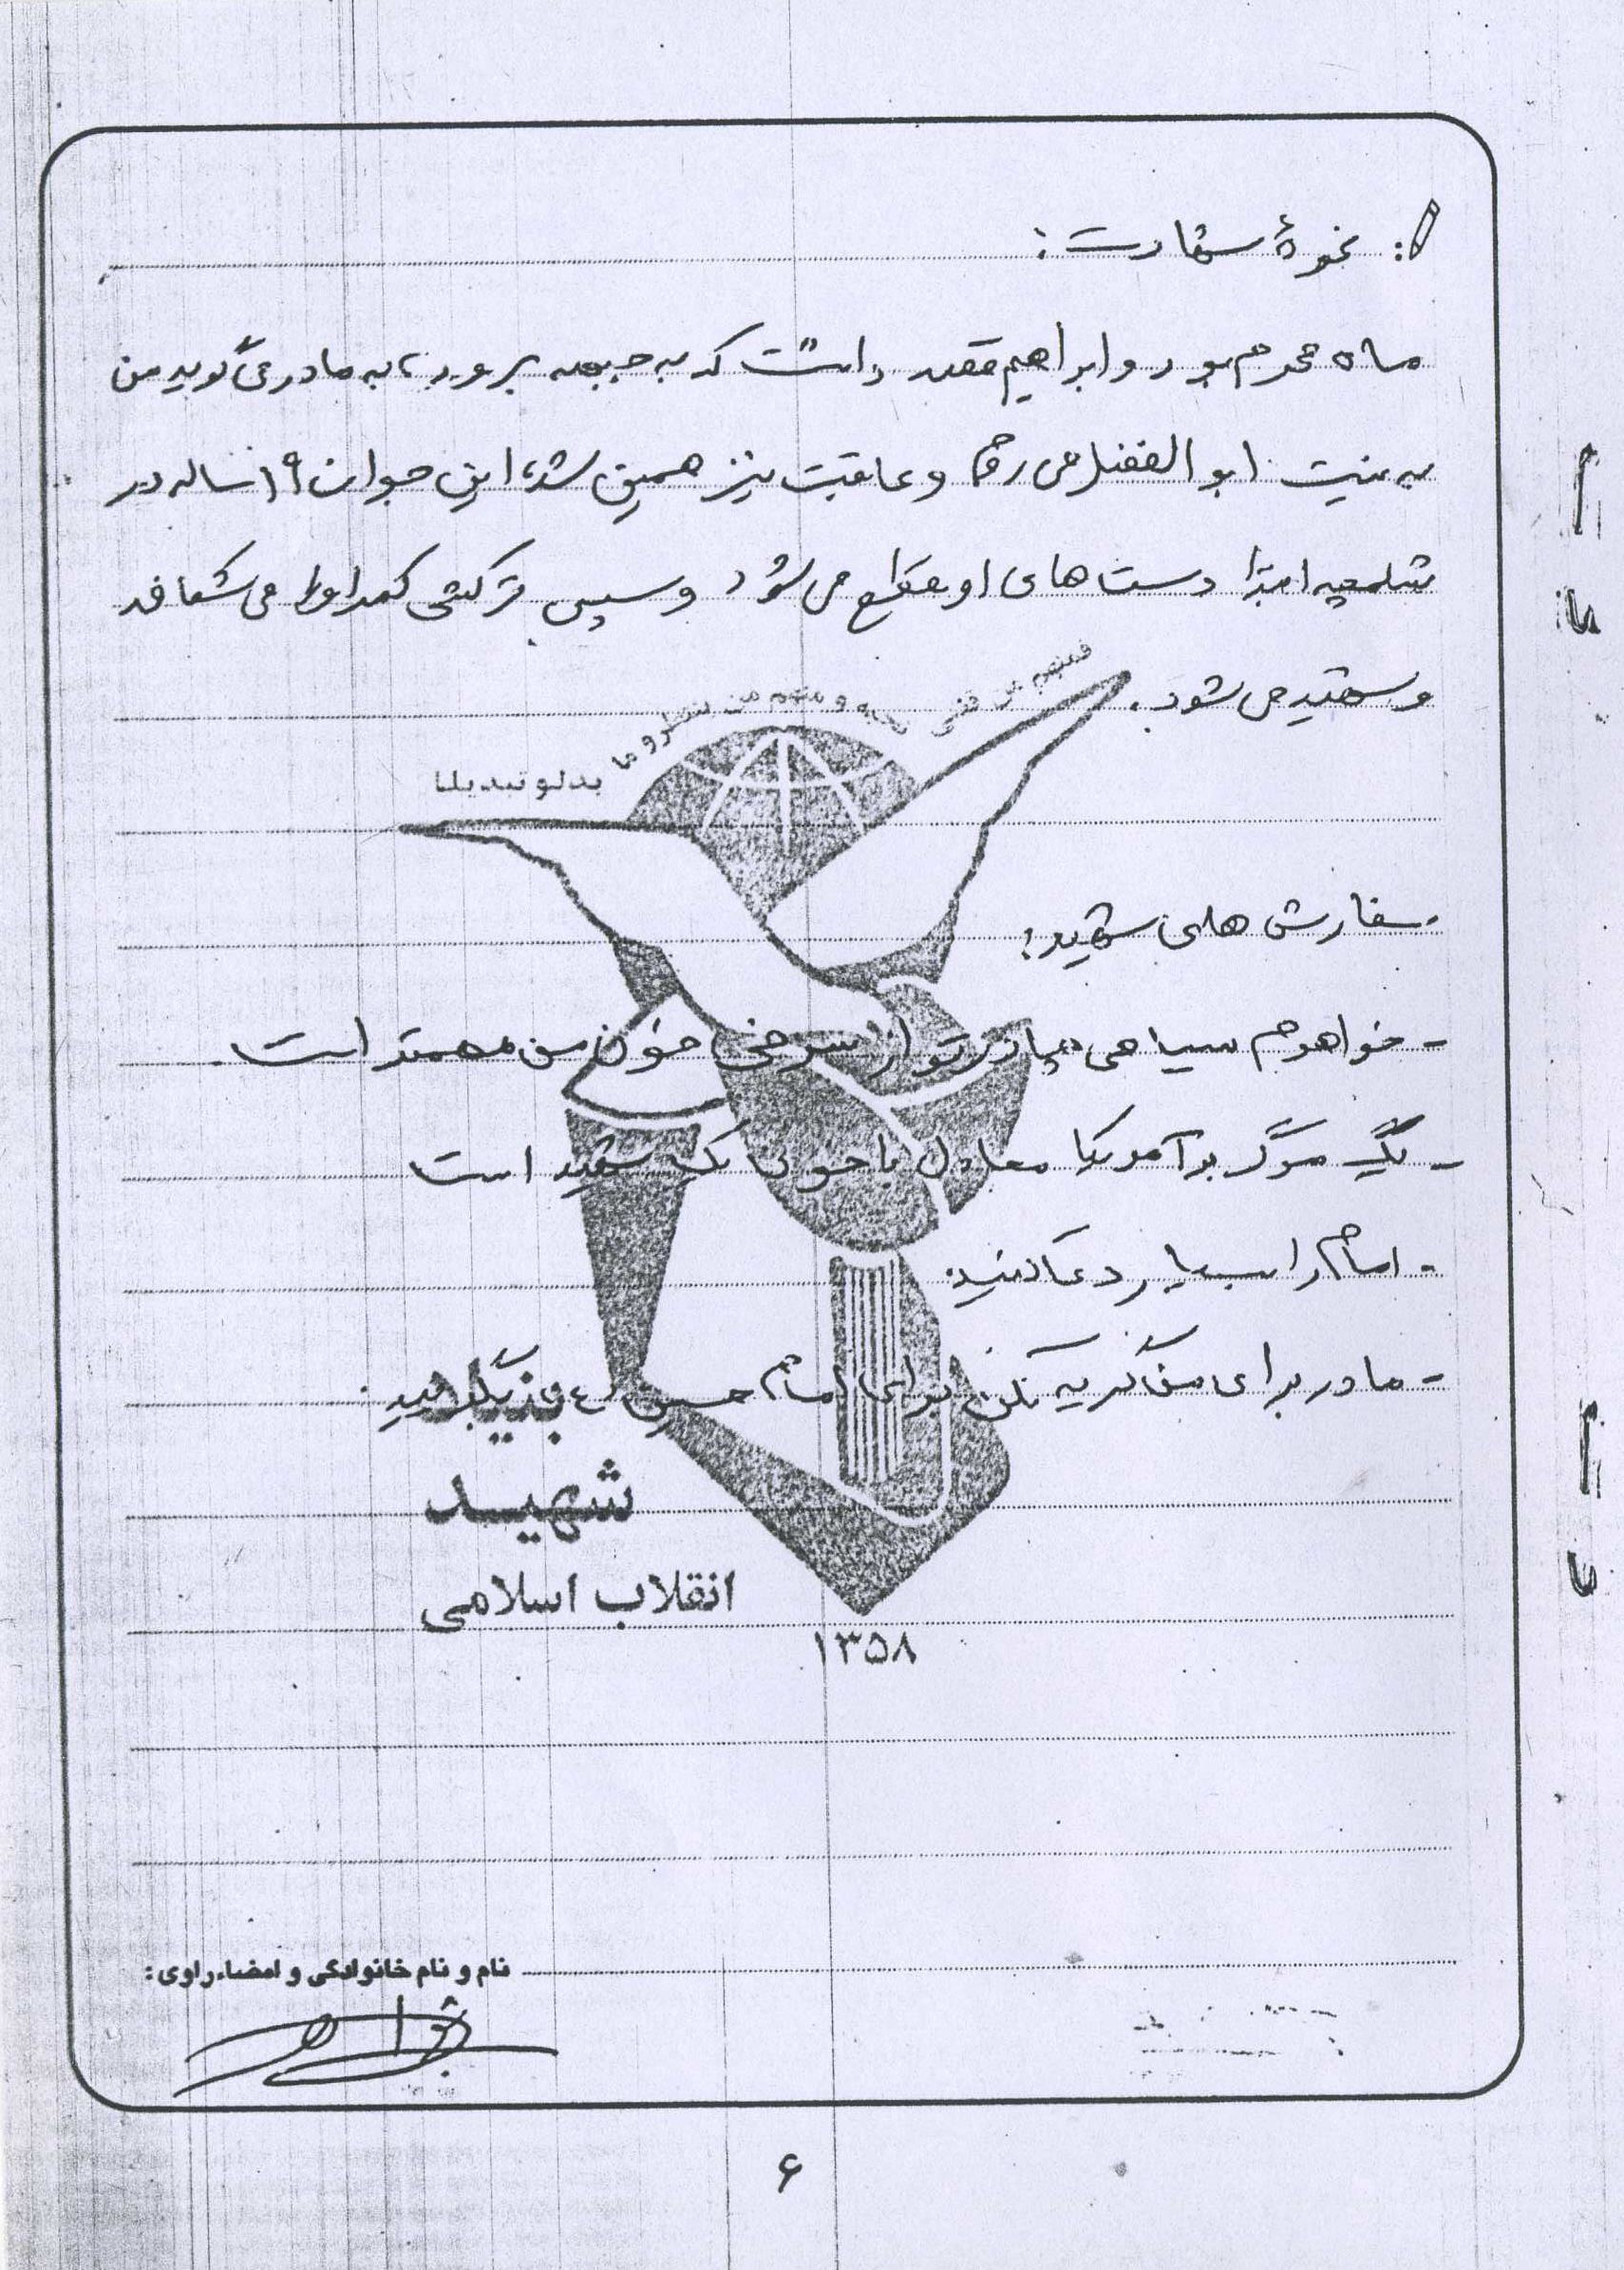 نحوهٔ شهادت:
ماه محرم بود و ابراهیم قصد داشت که به جبهه برود، به مادر می‌گوید من
به نیت ابوالفضل می‌رم و عاقبت نیز همین شد، این جوان ۱۹ ساله در
شلمچه ابتدا دست‌های او قطع می‌شود و سپس ترکشی کمر او را می‌شکافد
و شهید می‌شود.
فمنهم من قضی نحبه و منهم من ینتظر و ما بدلو تبدیلا
- سفارش های شهید:
- خواهرم سیاهی چادر تو از سرخی خون من مهمتر است.
- یک مرگ بر آمریکا معادل با خون یک شهید است
- امام را بسیار دعا کنید.
- مادر برای من گریه نکن برای امام حسین (ع)
بنیاد
شهید
انقلاب اسلامی
۱۳۵۸
نام و نام خانوادگی و امضاء راوی:
۶